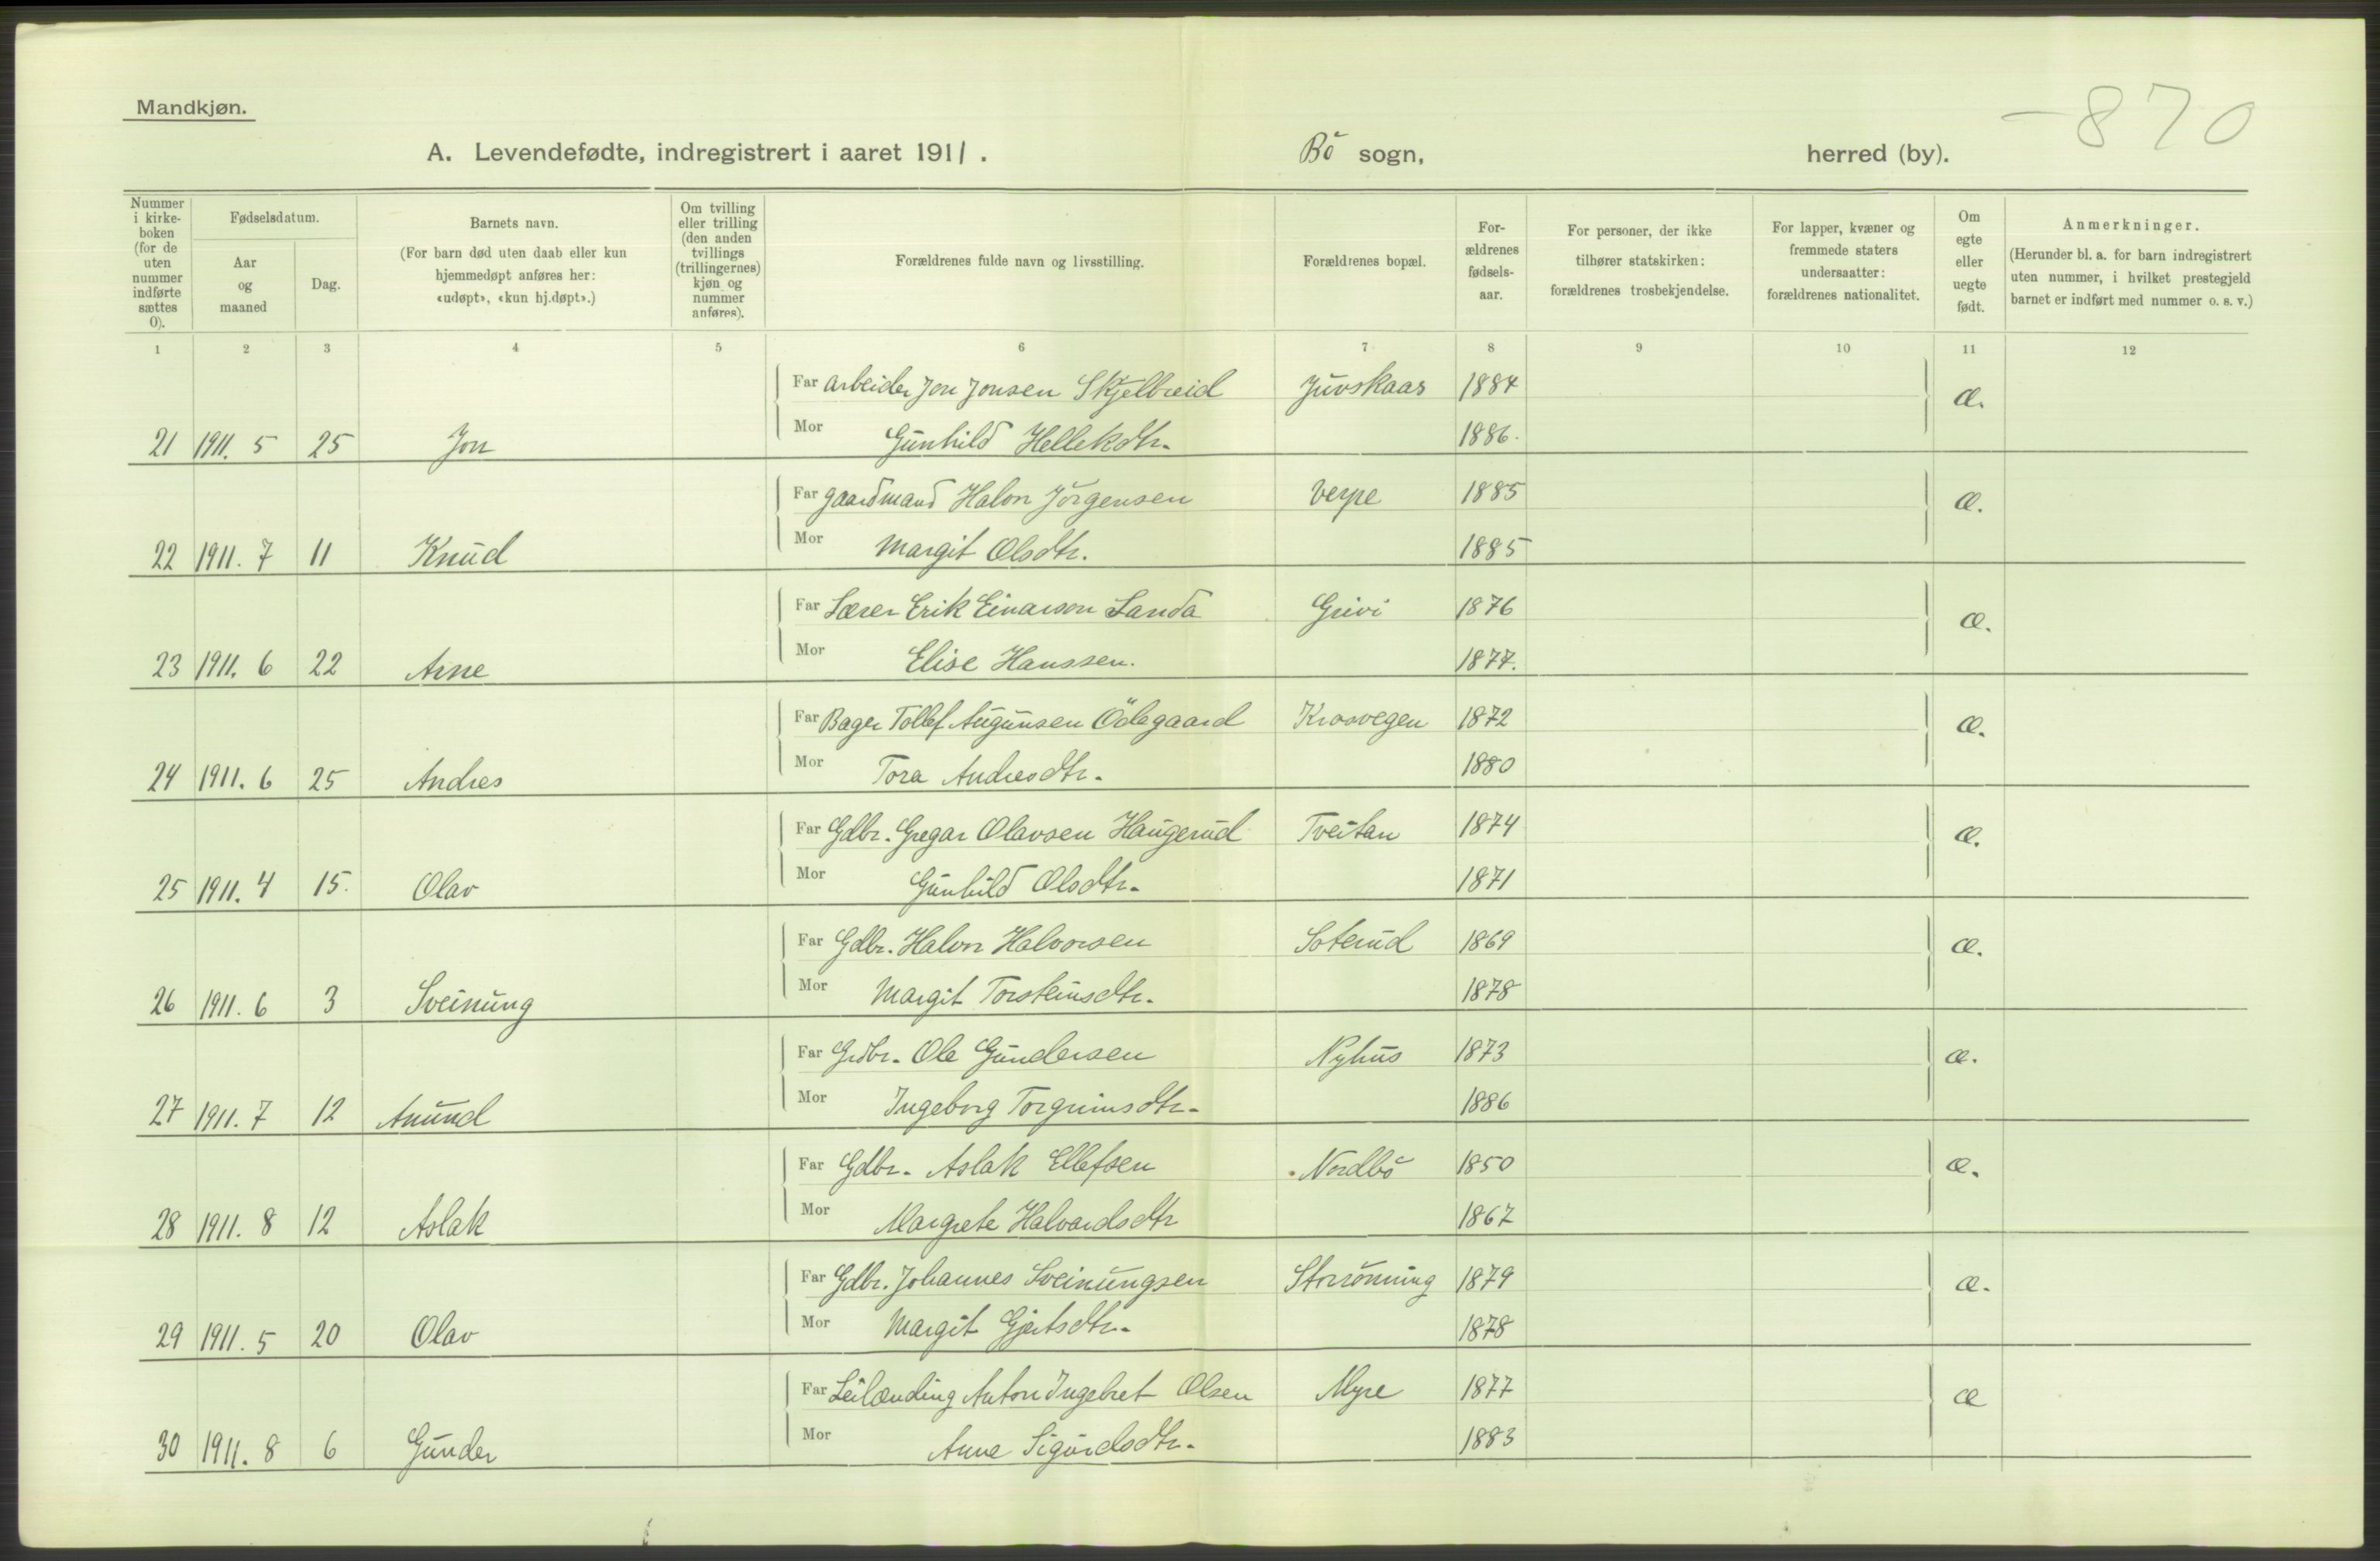 -870
Mandkjøn.
A. Levendefødte, indregistrert i aaret 1911. Bö sogn, herred (by).
Nummer i kirkeboken (for de uten nummer indførte sættes 0).
Fødselsdatum.
Aar og maaned
Dag.
Barnets navn.
(For barn død uten daab eller kun hjemmedøpt anføres her: «udøpt», «kun hj.døpt».)
Om tvilling eller trilling (den anden tvillings (trillingernes) kjøn og nummer anføres).
Forældrenes fulde navn og livsstilling.
Forældrenes bopæl.
Forældrenes fødselsaar.
For personer, der ikke tilhører statskirken: forældrenes trosbekjendelse.
For lapper, kvæner og fremmede staters undersaatter: forældrenes nationalitet.
Om egte eller uegte født.
Anmerkninger.
(Herunder bl. a. for barn indregistrert uten nummer, i hvilket prestegjeld barnet er indført med nummer o. s. v.)
1 2 3 4 5 6 7 8 9 10 11 12
Far arbeider Jon Jonsen Skjelbreid Juvskaas 1884 æ.
21 1911. 5 25 Jon Mor Gunhild Hellekdtr. 1886.
Far gaardmand Halvor Jörgensen Verpe 1885 æ.
22 1911. 7 11 Knud Mor Margit Olsdtr. 1885
Far Lærer Erik Einarson Landa Grivi 1876 æ.
23 1911. 6 22 Arne Mor Elise Hanssen. 1877.
Far Bager Tollef Augunsen Ödegaard Krosvegen 1872 æ.
24 1911. 6 25 Andres Mor Tora Andresdtr. 1880
Far Gdbr. Gregar Olavsen Haugerud Tveitan 1874 æ.
25 1911. 4 15. Olav Mor Gunhild Olsdtr. 1871
Far Gdbr. Halvor Halvorsen Soterud 1869 æ.
26 1911. 6 3 Sveinung Mor Margit Torsteinsdtr. 1878
Far Grdbr. Ole Gundersen Nyhus 1873 æ.
27 1911. 7 12 Anund Mor Ingeborg Torgrimsdtr. 1886
Far Gdbr. Aslak Ellefsen Nordbö 1850 æ.
28 1911. 8 12 Aslak Mor Margrete Halvardsdtr 1867
Far Gdbr. Johannes Sveinungsen Storrönning 1879 æ.
29 1911. 5 20 Olav Mor Margit Gjertsdtr. 1878
Far Leilænding Anton Ingebret Olsen Myre 1877 æ
30 1911. 8 6 Gunder Mor Anne Sigurdsdtr. 1883